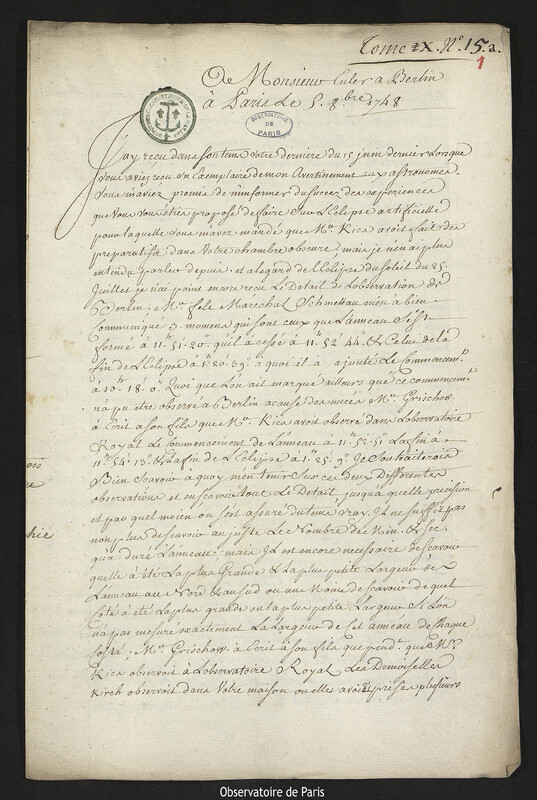 Tome IX. N.º 15. a.
1
De Monsieur Euler a Berlin
à Paris Le 5. 8.bre 1748
OBSERVATOIRE
DE
PARIS
J'ay reçu dans son tems votre derniere du 15 juin dernier Lorsque
vous aviez reçu un Exemplaire de mon Avertissement aux astronomes.
Vous m'aviez promis de m'informer du succez des experiences
que vous vous étiez proposé de faire sur L'Eclipse artificielle
pour laquelle vous m'avez mandé que Mr. Kies avoit fait des
preparatifs dans votre chambre obscure; mais je n'en ai plus
entendu parler depuis. et a legard de l'Eclipse du soleil du 25.
Juillet je n'ai point encore reçu Le Detail de Lobservation de
Berlin; Mr. Le Maréchal Schmettau m'en a bien
communiqué 3. momens qui sont ceux que L'anneau s'est
formé à 11.h 51.' 20." quil à cessé à 11.h 52.' 44." & Celui de la
fin de L'Eclipse à 1.h 20.' 39." a quoi il a ajouté Le Commencem.t
à 10.h 18.' 0." Quoi que Lon ait marqué ailleurs que ce commencem.t
n'a pu etre observé a Berlin a cause des nuées Mr. Grischow
à Ecrit a son fils que Mr. Kies avoit observé dans Lobservatoire
Royal Le Commencement de L'anneau à 11.h 52.' 51." La fin à
11.h 54.' 13." & La fin de L'Eclipse à 1.h 25.' 9." Je Souhaiterois
Bien scavoir a quoy m'en tenir sur ces deux Differentes
observations et en scavoir tout Le Detail, jusqua quelle precision
et par quel moien on s'est assuré du tems vray. Il ne suffit pas
non plus de scavoir au juste Le Nombre de Min. & sec.
qu'a duré L'anneau: mais Il est encore necessaire de scavoir
quelle à été La plus Grande & La plus petite Largeur de
L'anneau au Nord & au sud ou au Moins de scavoir de quel
Coté à été La plus grande ou La plus petite Largeur si Lon
n'a pas mesuré exactement La Largeur de cet anneau de chaque
coté. Mr. Grischow à Ecrit à son fils que pend.t que Mr.
Kies observoit à Lobservatoire Royal Les Demoiselles
Kirch observoit dans Votre maison ou elles avoient prises plusieurs
Observatoire de Paris